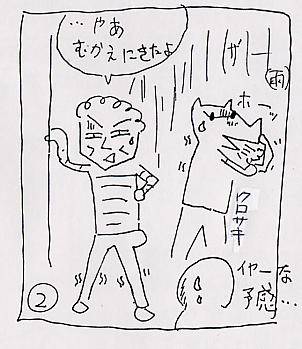 …やあ
むかえにきたよ
ザー
雨
ホーッ
クロサキ
イヤーな
予感…
②